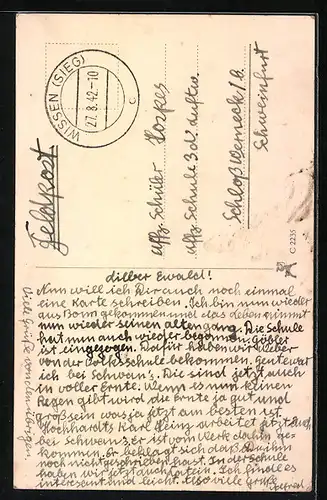 WISSEN (SIEG)
27.8.42-10
c
Feldpost
Uffz. Schüler Hoskes
Uffz. Schule 3 d. Luftw.
Schloß Werneck i. B.
Schweinfurt
C 2235
Lieber Ewald!
Nun will ich Dir auch noch einmal
eine Karte schreiben. Ich bin nun wieder
aus Bonn gekommen und das Leben nimmt
nun wieder seinen alten gang. Die Schule
hat nun auch wieder begonnen. Göbler
ist eingezogen. Dafür haben wir Weber
von der Volksschule bekommen. Heute war
ich bei Schwanz. Die sind jetzt auch
in voller Ernte. Wenn es nun keinen
Regen gibt wird die Ernte ja gut und
groß sein was ja jetzt am besten ist.
Hochhardts Karl Heinz arbeitet jetzt auch
bei Schwanz er ist vom Werk dahin ge-
kommen. Er beklagt sich daß du ihm
noch nicht geschrieben hast. In der Schule
haben wir jetzt auch Latein. Ich finde es
interesant und leicht. Also viele Grüße
Alfred
Viele Grüße von den übrigen